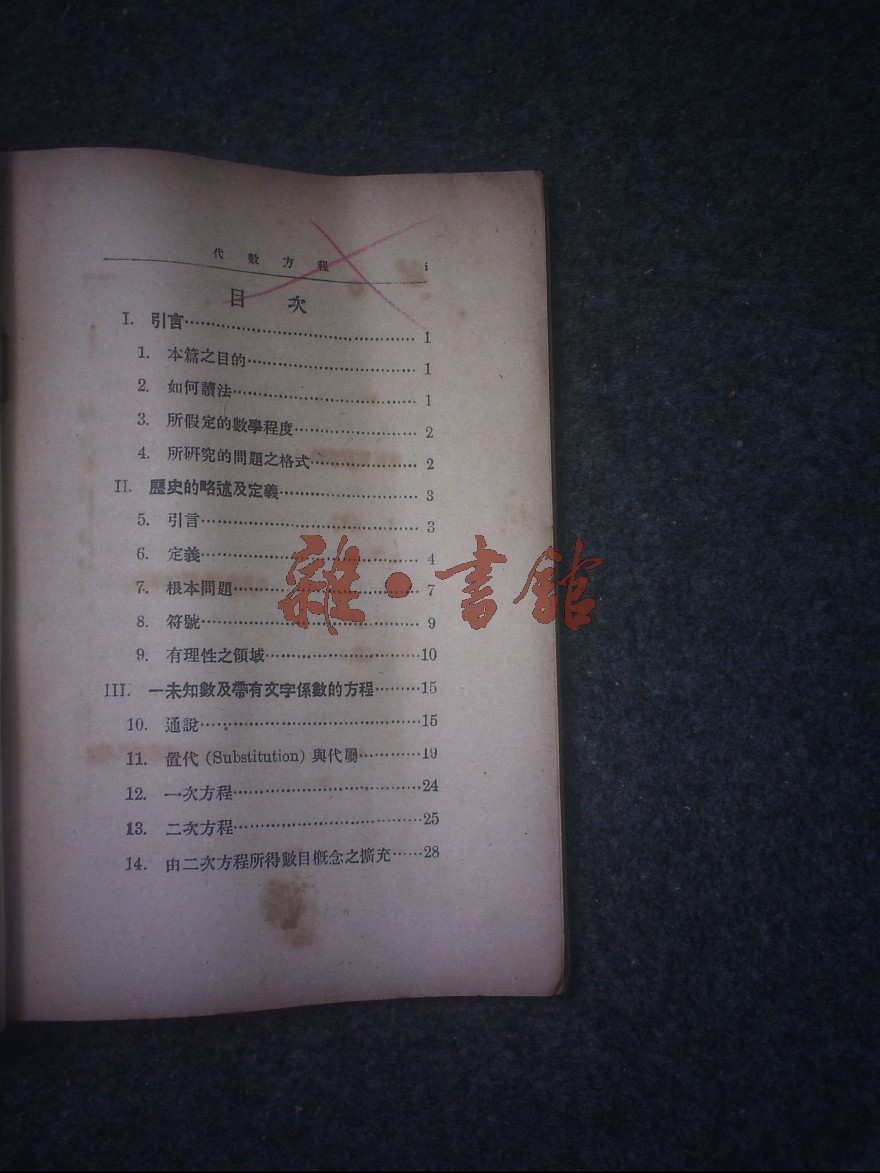 代數方程 i
目次
I. 引言 1
1. 本篇之目的 1
2. 如何讀法 1
3. 所假定的數學程度 2
4. 所研究的問題之格式 2
II. 歷史的略述及定義 3
5. 引言 3
6. 定義 4
7. 根本問題 7
8. 符號 9
9. 有理性之領域 10
III. 一未知數及帶有文字係數的方程 15
10. 通說 15
11. 置代 (Substitution) 與代屬 19
12. 一次方程 24
13. 二次方程 25
14. 由二次方程所得數目概念之擴充 28
雜·書館